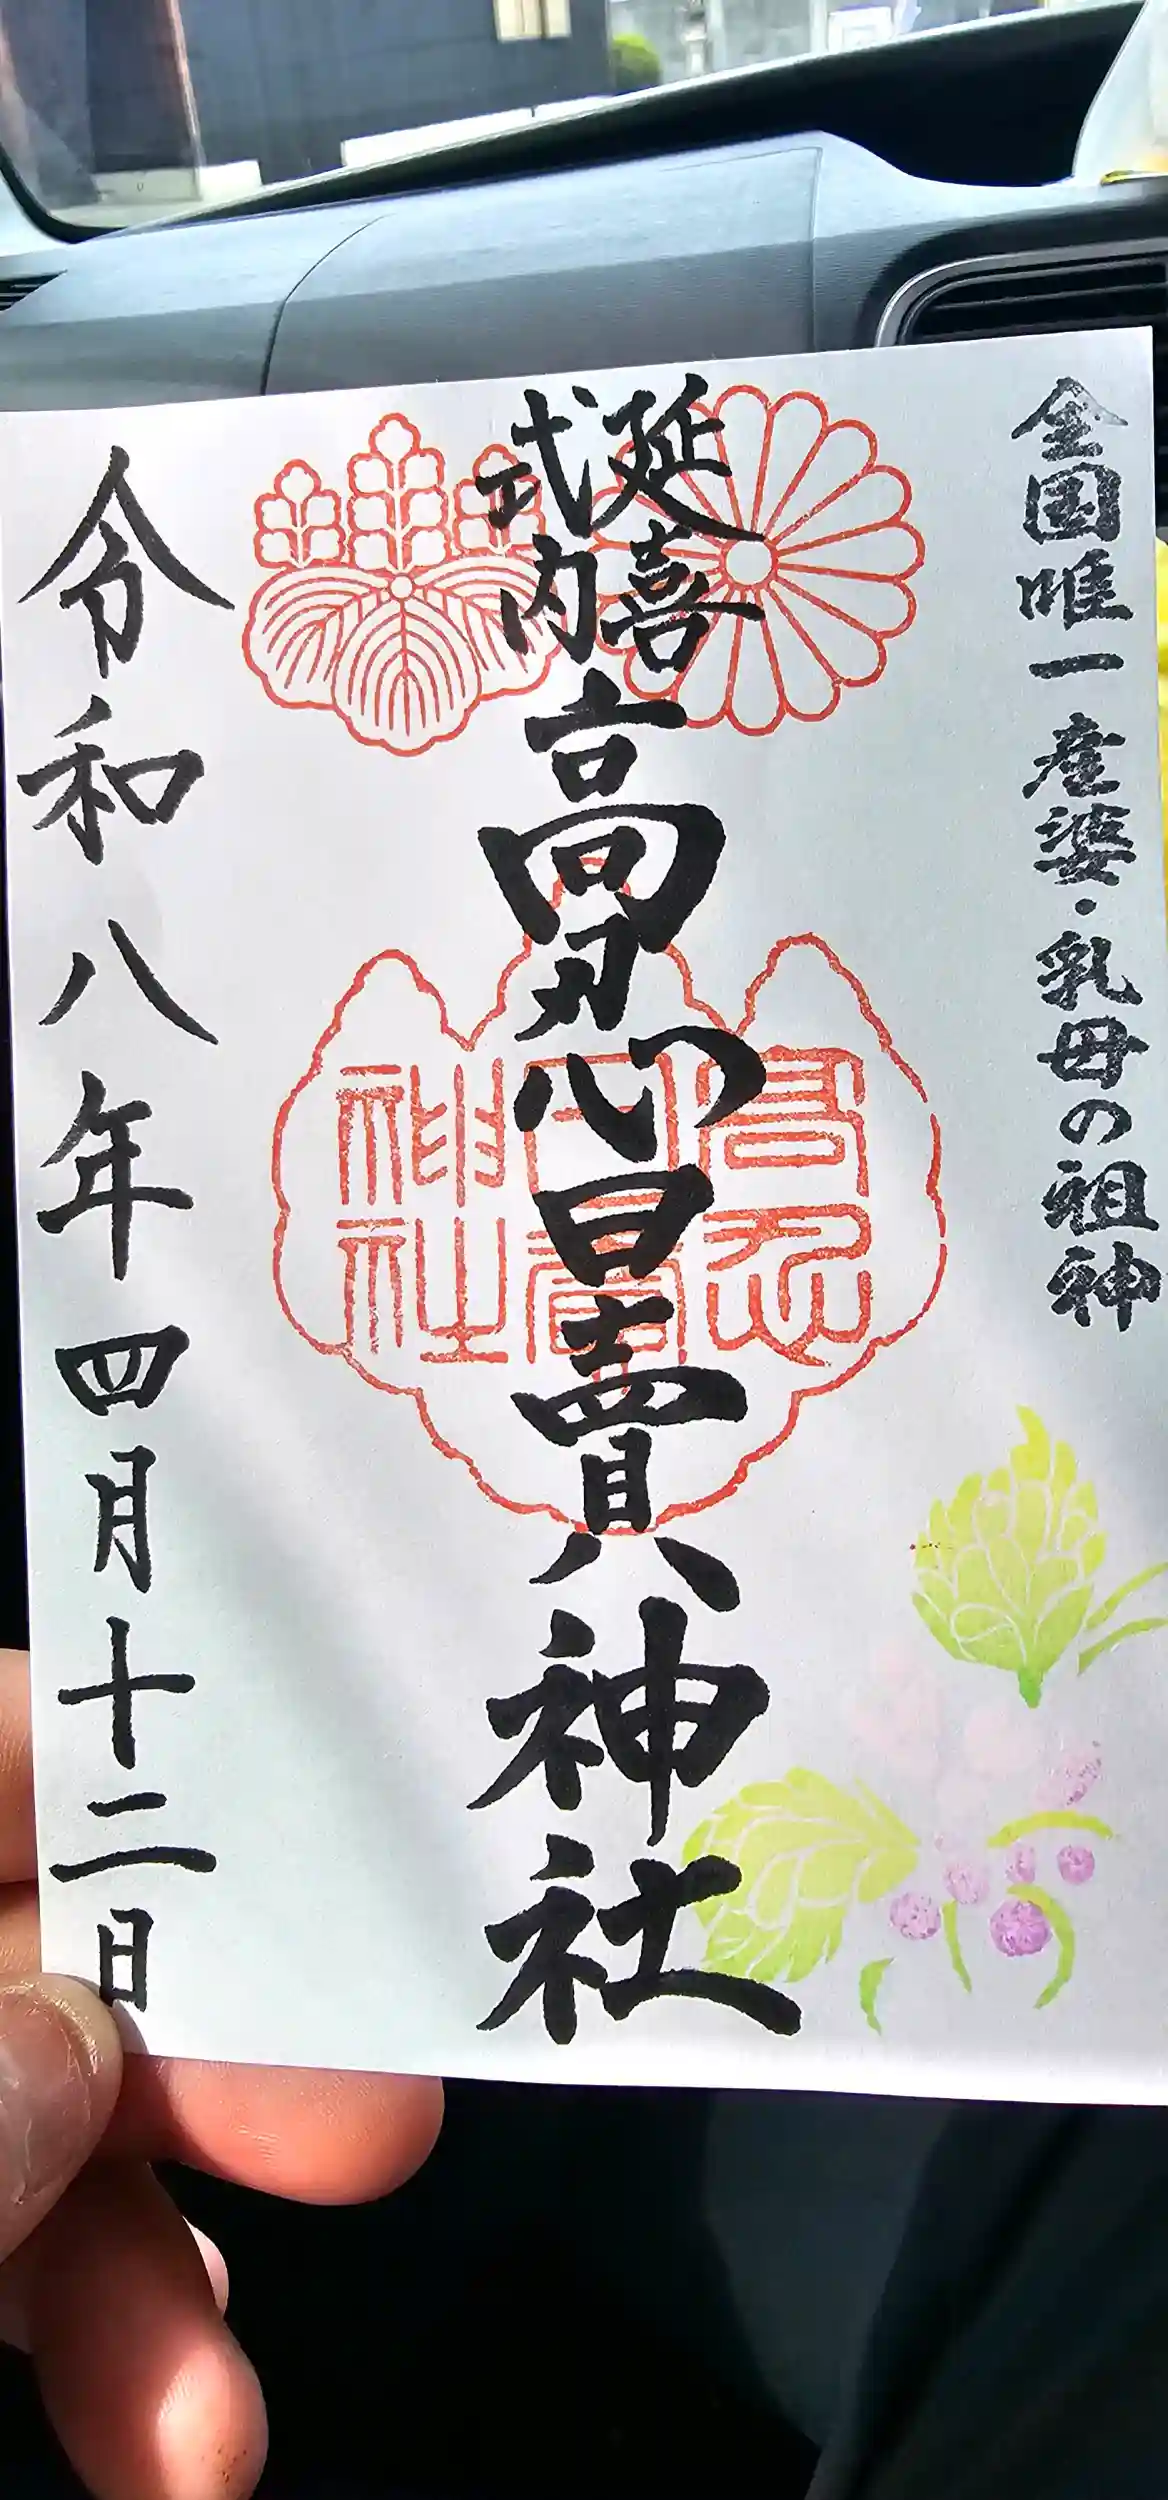 全国唯一 産婆・乳母の祖神
延喜
式内
高忍日賣神社
高忍
日賣
神社
令和八年四月十二日